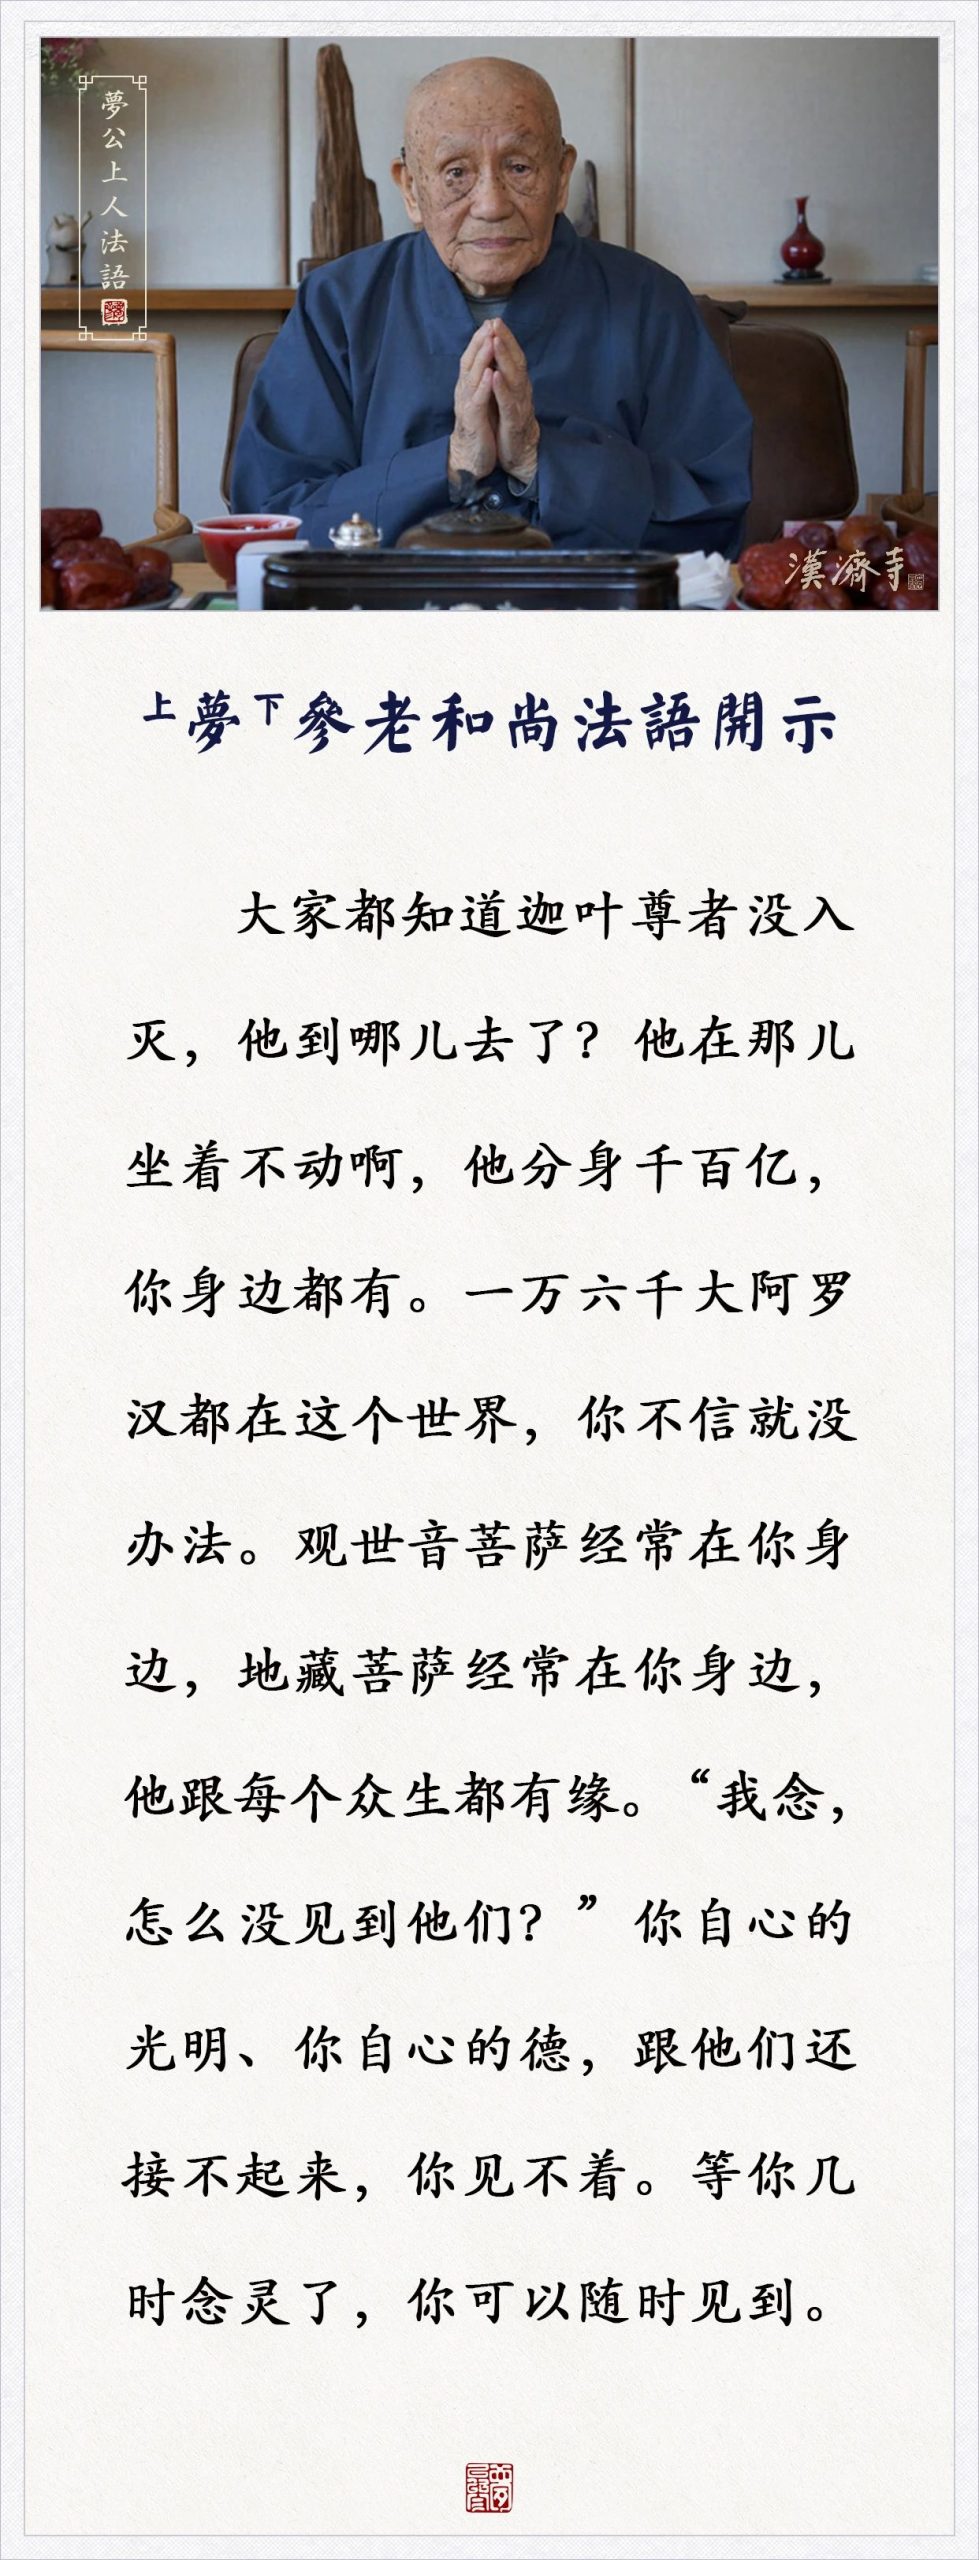 夢公上人法語
漢濟寺
上夢下參老和尚法語開示
大家都知道迦叶尊者没入
灭，他到哪儿去了？他在那儿
坐着不动啊，他分身千百亿，
你身边都有。一万六千大阿罗
汉都在这个世界，你不信就没
办法。观世音菩萨经常在你身
边，地藏菩萨经常在你身边，
他跟每个众生都有缘。“我念，
怎么没见到他们？”你自心的
光明、你自心的德，跟他们还
接不起来，你见不着。等你几
时念灵了，你可以随时见到。